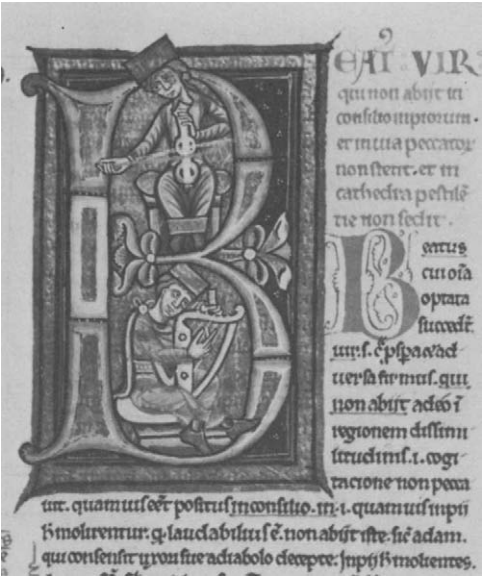 B
EATVIR
qui non abijt in
consilio impiorum.
et in uia peccatoꝝ
non stetit. et in
cathedra pestilē
tie non sedit.
Beatus
cui oīa
optata
succedt̄
uir. s.
uersa firmus. qui
non abijt adeo ī
regionem dissimi
litudinis. i. cogi
tacione non pecca
uit. quam uis eēt positus in consilio. i. quam uis inpii
molirentur. laudabilius ē. non abijt iste. sic̄ adam.
qui consensit uxori sue a diabolo decepte. Inpij molientes.